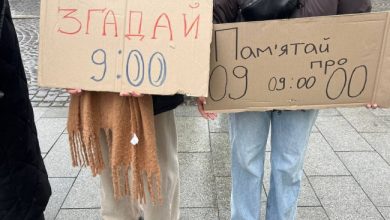 ЗГАДАЙ
9:00
Пам'ятай
про
09 09:00 00